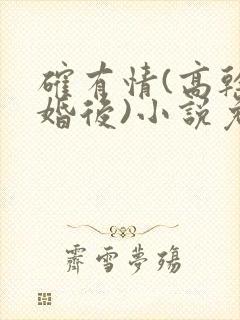 確有情(高幹
婚後)小說免
霽雪夢殤